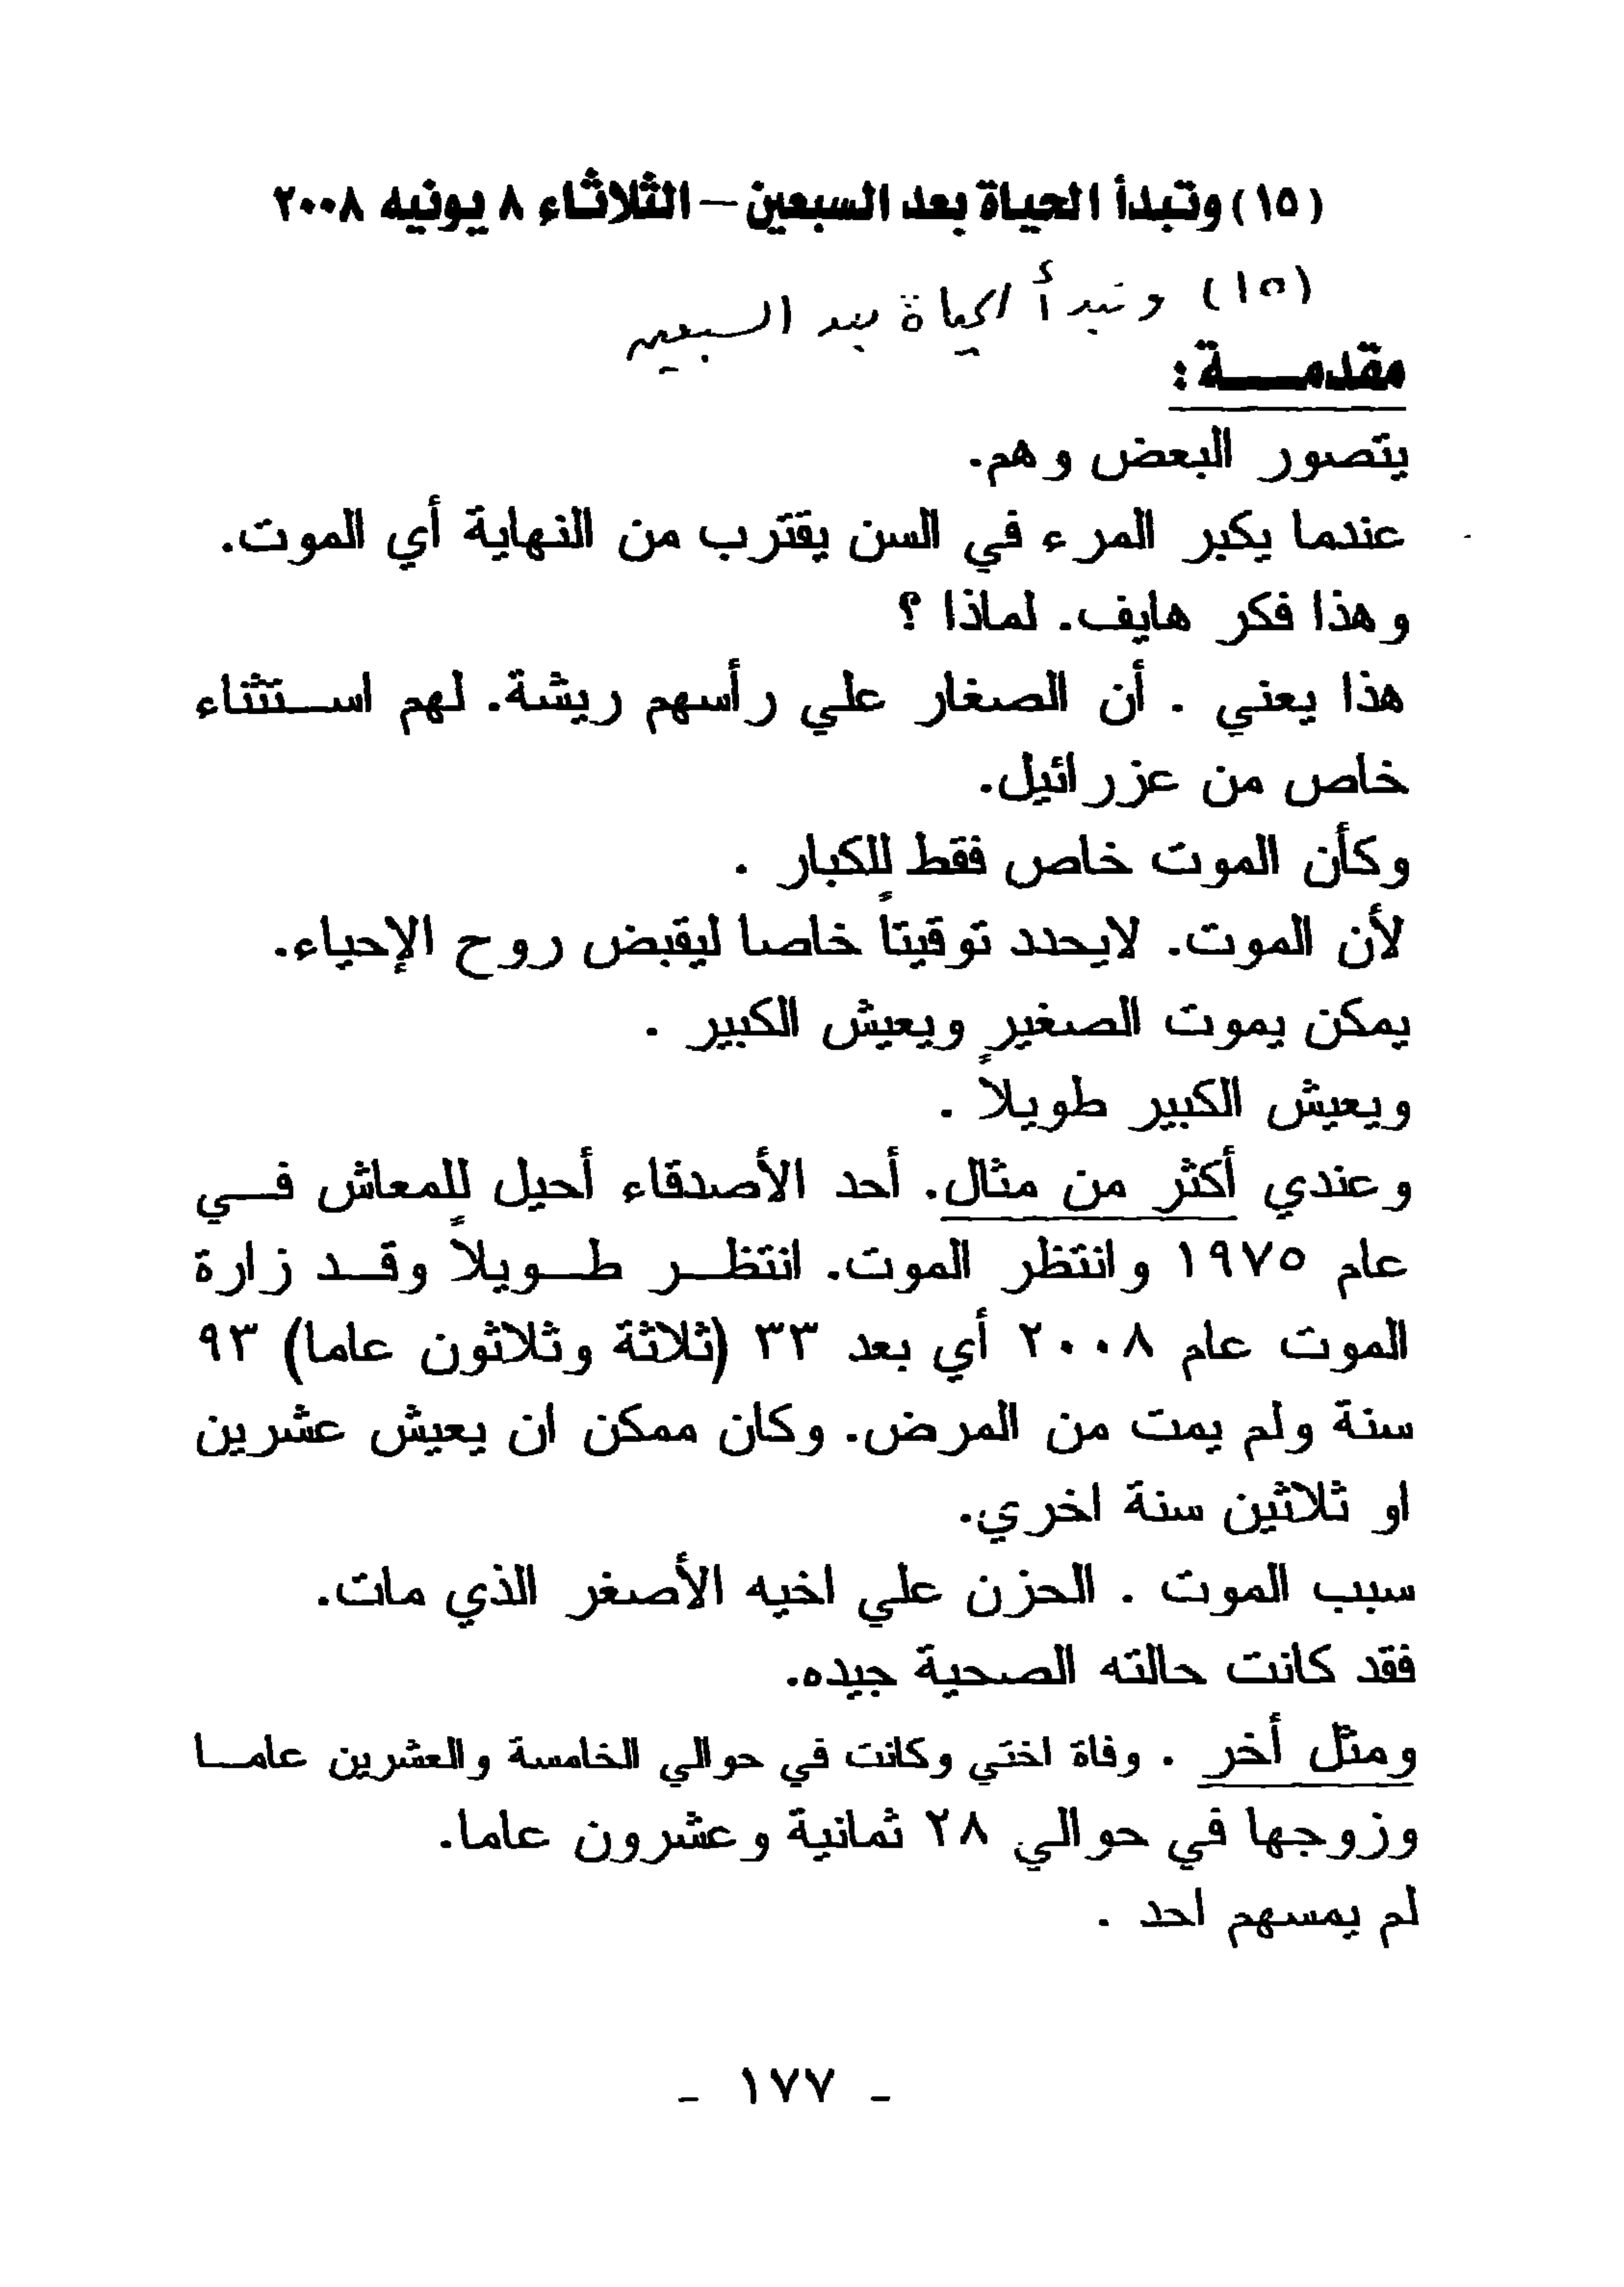 (١٥) وتبدأ الحياة بعد السبعين – الثلاثاء ٨ يونيه ٢٠٠٨
(١٥) وتبدأ الحياة بعد السبعين
مقدمــة :
يتصور البعض وهم.
عندما يكبر المرء في السن يقترب من النهاية أي الموت.
وهذا فكر هايف. لماذا ؟
هذا يعني . أن الصغار علي رأسهم ريشة. لهم اســتثناء
خاص من عزرائيل.
وكأن الموت خاص فقط للكبار .
لأن الموت. لايحدد توقيتاً خاصا ليقبض روح الإحياء.
يمكن يموت الصغير ويعيش الكبير .
ويعيش الكبير طويلاً .
وعندي أكثر من مثال. أحد الأصدقاء أحيل للمعاش فــي
عام ١٩٧٥ وانتظر الموت. انتظــر طــويلاً وقــد زارة
الموت عام ٢٠٠٨ أي بعد ٣٣ (ثلاثة وثلاثون عاما) ٩٣
سنة ولم يمت من المرض. وكان ممكن ان يعيش عشرين
او ثلاثين سنة اخري.
سبب الموت . الحزن علي اخيه الأصغر الذي مات.
فقد كانت حالته الصحية جيده.
ومثل أخر . وفاة اختي وكانت في حوالي الخامسة والعشرين عامــا
وزوجها في حوالي ٢٨ ثمانية وعشرون عاما.
لم يمسهم احد .
- ١٧٧ -